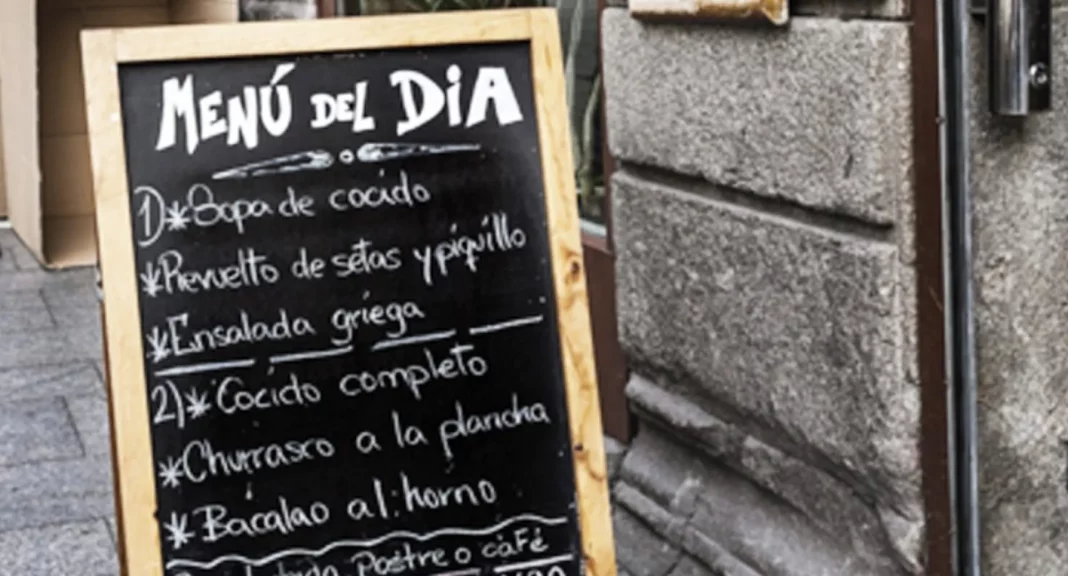 MENÚ DEL DiA
1)*Sopa de cocido
*Revuelto de setas y piquillo
*Ensalada griega
2)*Cocido completo
*Churrasco a la plancha
*Bacalao al horno
Postre o café